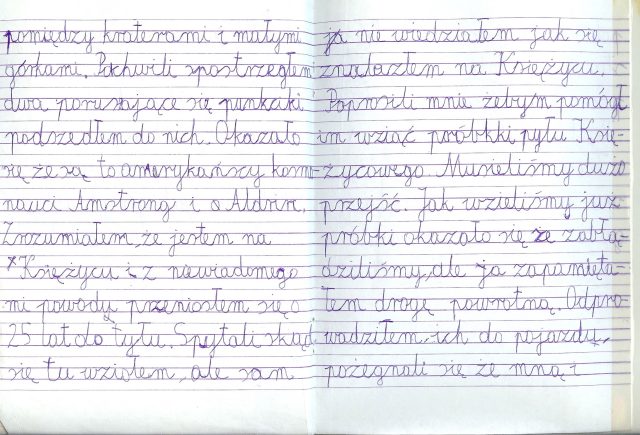 pomiędzy kraterami i małymi
górkami. Pochwili spostrzegłem
dwa poruszające się punkciki
podszedłem do nich. Okazało
się że są to amerykańscy kosmo-
nauci Amstrong i Aldrin.
Zrozumiałem, że jestem na
Księżycu i z niewiadomego
mi powodu przeniosłem się o
25 lat do tyłu. Spytali skąd
się tu wziołem, ale sam
ja nie wiedziałem jak się
znalazłem na Księżycu.
Poprosili mnie żebym pomógł
im wziąć próbkki pyłu Księ-
życowego. Musieliśmy dużo
przejść. Jak wzieliśmy już
próbki okazało się że zabłą-
dziliśmy, ale ja zapamięta-
łem drogę powrotną. Odpro-
wadziłem, ich do pojazdu,
pożegnali się że mną i